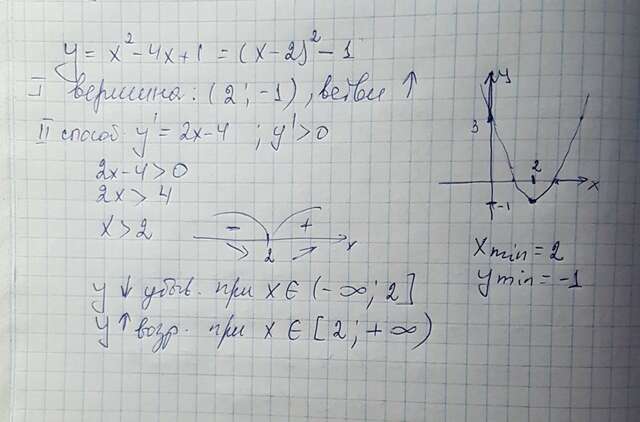 y = x² - 4x + 1 = (x - 2)² - 1
I вершина: (2; -1), ветви ↑
II способ: y' = 2x - 4 ; y' > 0
2x - 4 > 0
2x > 4
x > 2
- +
2 x
y ↓ убыв. при x ∈ (-∞; 2]
y ↑ возр. при x ∈ [2; +∞)
y
3
2
x
-1
x min = 2
y min = -1